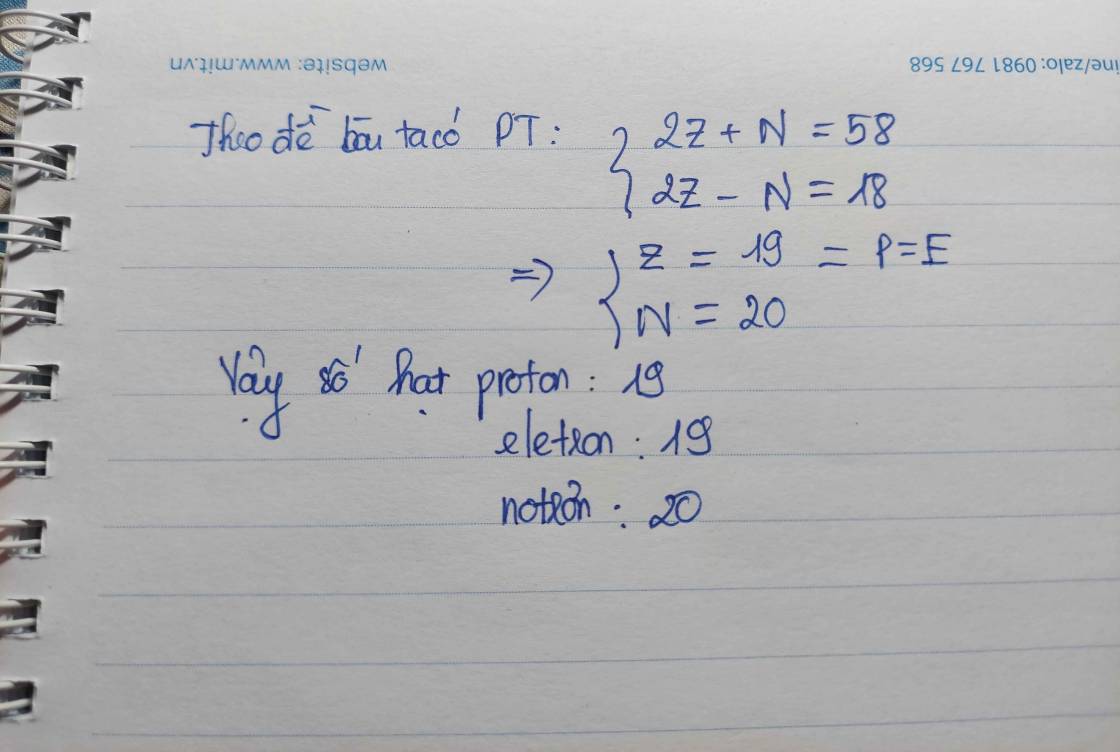 website: www.mit.vn
ine/zalo: 0981 767 568
Theo đề bài ta có PT: { 2Z + N = 58
2Z - N = 18
=> { Z = 19 = P = E
N = 20
Vậy số hạt proton : 19
eletron : 19
notrơn : 20